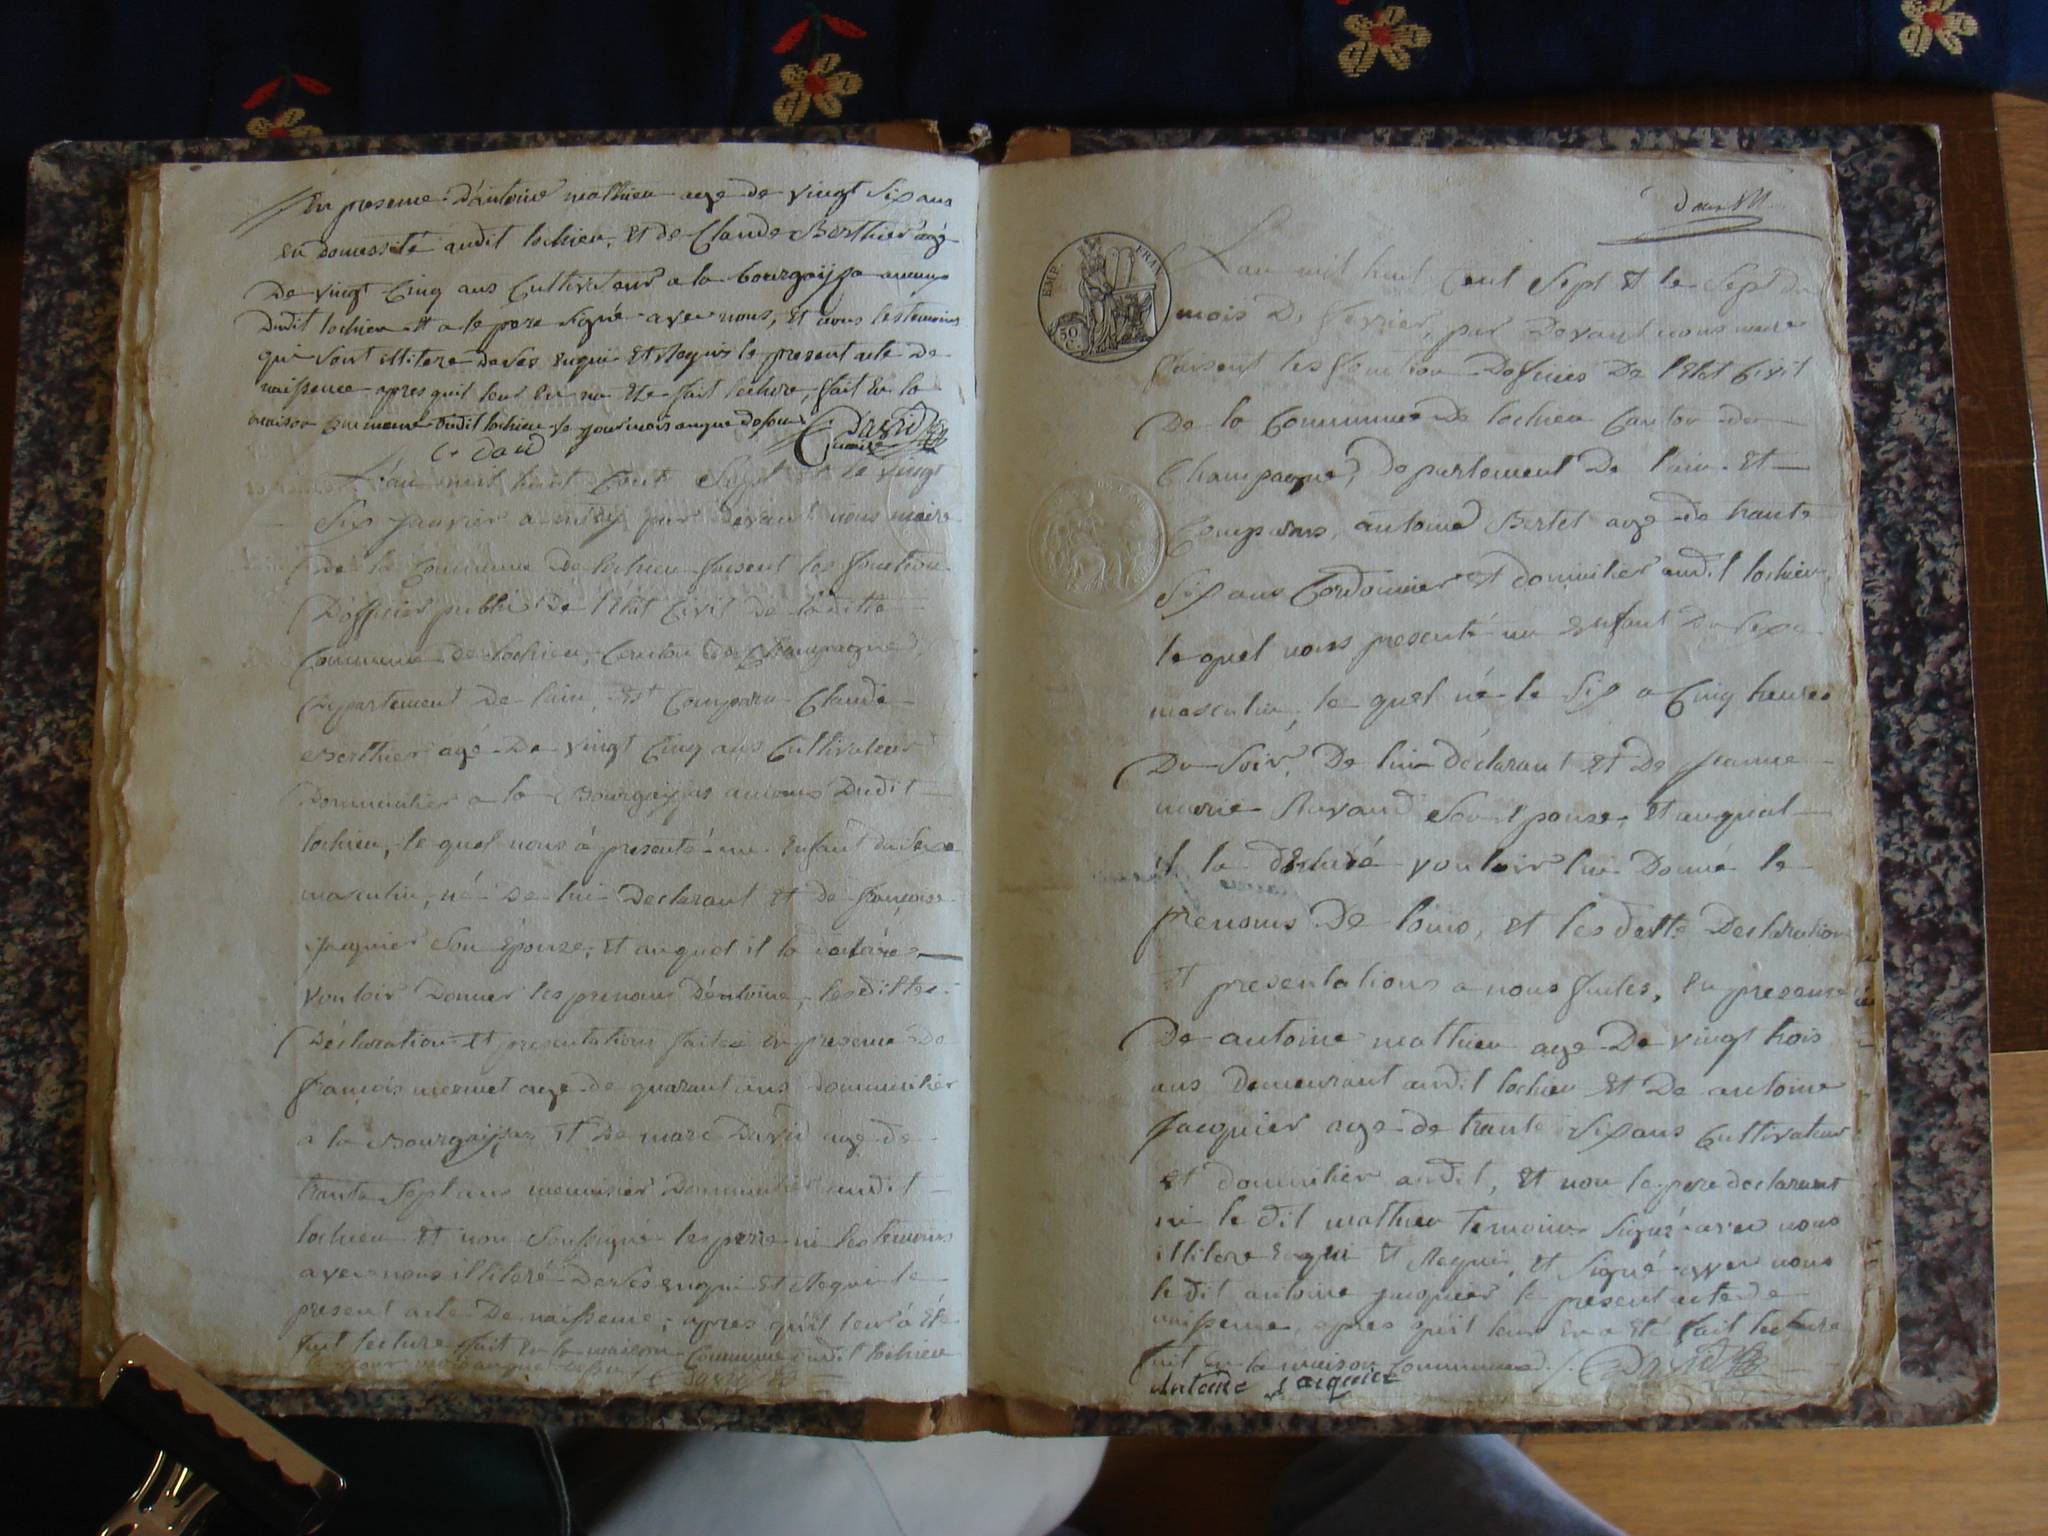 En presence d'antoine mathieu age de vingt six ans
en domessité audit lochieu, et de Claude Berthier agé
De vingt Cinq ans Cultivateur a la bourgaysse
Dudit lochieu et a le pere signé avec nous, et nous les temoins
qui sont illitere de ses enqui et Requis le present acte de
naissence apres quil leur en na ete fait lecture, fait En la
maison Commune dudit lochieu le jour mois an que desus David
maire
C. david
L'an mil huit Cent Sept et le vingt
Six janvier a midy par devant nous maire
De la Commune De lochieu faisent les fonction
D'officier public De l'Etat Civil de laditte
Commune de lochieu, Canton de Champagne,
Departement De lain, est Comparu Claude
Berthier agé De vingt Cinq ans Cultivateur
Domicilier a la Bourgaysses Dudit
lochieu, le quel nous à presenté un Enfant du Sexe
masculin, né De lui Declarant et de françoise
jaquier Son Épouze; et auquel il la declarés
vouloir Donner les prenoms D'antoine, lesdittes
Déclaration et presentation faites En presence De
françois mermet age de quarant ans domicilier
a la Bourgaysses et De marc David age de
trante Sept ans menuisier Domicilier audit
lochieu et non Soussigné les pere ni les temoins
avec nous illiteré De ses enqui et Requi le
present acte De naissence; apres quil leur à été
fait lecture fait En la maison Commune dudit lochieu
le jour mois an que dessus David
EMP. FRAN.
50
C.
L'an mil huit Cent Sept Et le Sept du
mois De fevrier, par Devant nous maire
faisent les fonction Doficiés De l'Etat Civil
De la Commune De lochieu Canton de
Champagne, Departement De l'ain Et
Comparus, antoine Bertet age de trante
Six ans Cordonnier et domicilier audit lochieu,
lequel nous presenté un Enfant Du Sexe
masculin, le quel né le Six a Cinq heures
Du Soir, De lui déclarant et De jeanne
marie Ravaud Son Epouse, Et auquel
il la déclaré vouloir lui Donné le
prenoms De louis, Et les ditte Declaration
Et presentations a nous faites, En presence
De antoine mathieu age De vingt trois
ans Demeurant audit lochieu Et De antoine
Jacquier age de trante Six ans Cultivateur
et domicilier audit, Et non le pere declarant
ni le dit mathieu temoins Signé avec nous
illitere Enqui Et Requi, et Signé avec nous
le dit antoine jacquier le present acte de
naissence, apres quil leur En a eté fait lecture
fait En la maison Commune David
Antoine Jacquier